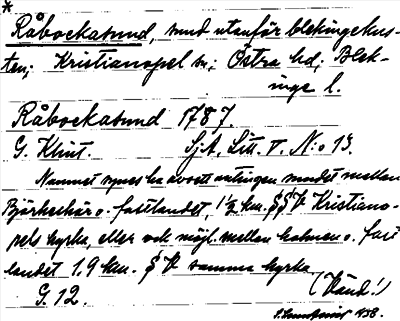 *
Råbockasund, sund utanför blekingekus-
ten; Kristianopel sn; Östra hd; Blek-
inge l.
Råbockasund 1787.
G. Klint. Sjk. Litt. T. N:o 13.
Namnet synes ha avsett antingen sundet mellan
Björkeskär o. fastlandet, 1½ km. Kristiano-
pels kyrka, eller ock möjl. mellan holmen o. fast
landet 1.9 km. samma kyrka
G. 12. (Vänd!)
1938.